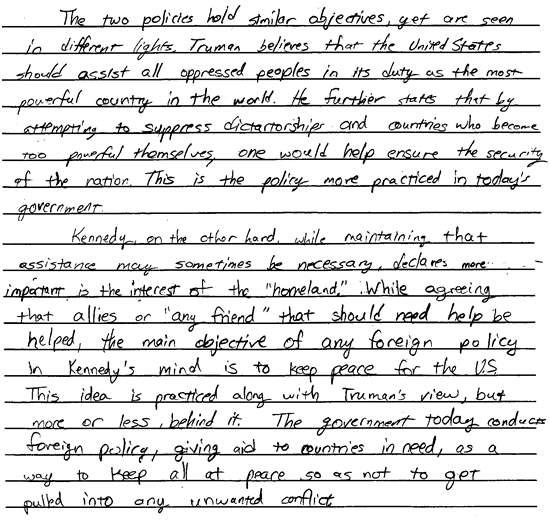 The two policies hold similar objectives, yet are seen
in different lights. Truman believes that the United States
should assist all oppressed peoples in its duty as the most
powerful country in the world. He further states that by
attempting to suppress dictartorships and countries who become
too powerful themselves, one would help ensure the security
of the nation. This is the policy more practiced in today's
government.
Kennedy, on the other hand, while maintaining that
assistance may sometimes be necessary, declares more
important is the interest of the "homeland." While agreeing
that allies or "any friend" that should need help be
helped, the main objective of any foreign policy
in Kennedy's mind is to keep peace for the U.S.
This idea is practiced along with Truman's view, but
more or less, behind it. The government today conducts
foreign policy, giving aid to countries in need, as a
way to keep all at peace so as not to get
pulled into any unwanted conflict